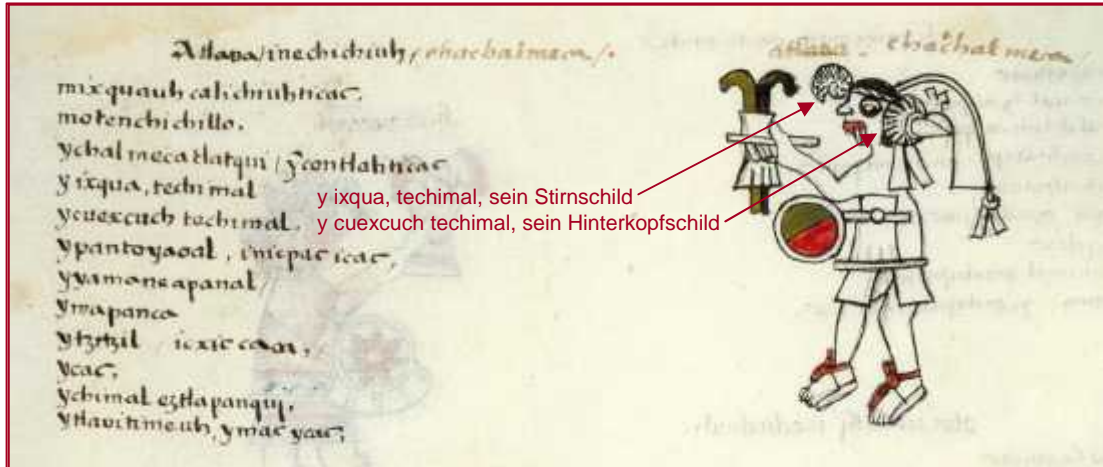 Atlaua / inechichiuh, chachalmeca /.
atlaua . chachalmeca /
mixquauh calichiuhticac,
motenchichillo,
ychalmeca tlatqui / ycontlahticac
y ixqua, techimal
ycuexcuch techimal,
ypantoyaoal, inicpac icac,
yyamaneapanal
ymapanca
ytzitzil icxic
ycac,
ychimal eztlapanqui,
ytlauitimeuh, ymac
y ixqua, techimal, sein Stirnschild
y cuexcuch techimal, sein Hinterkopfschild